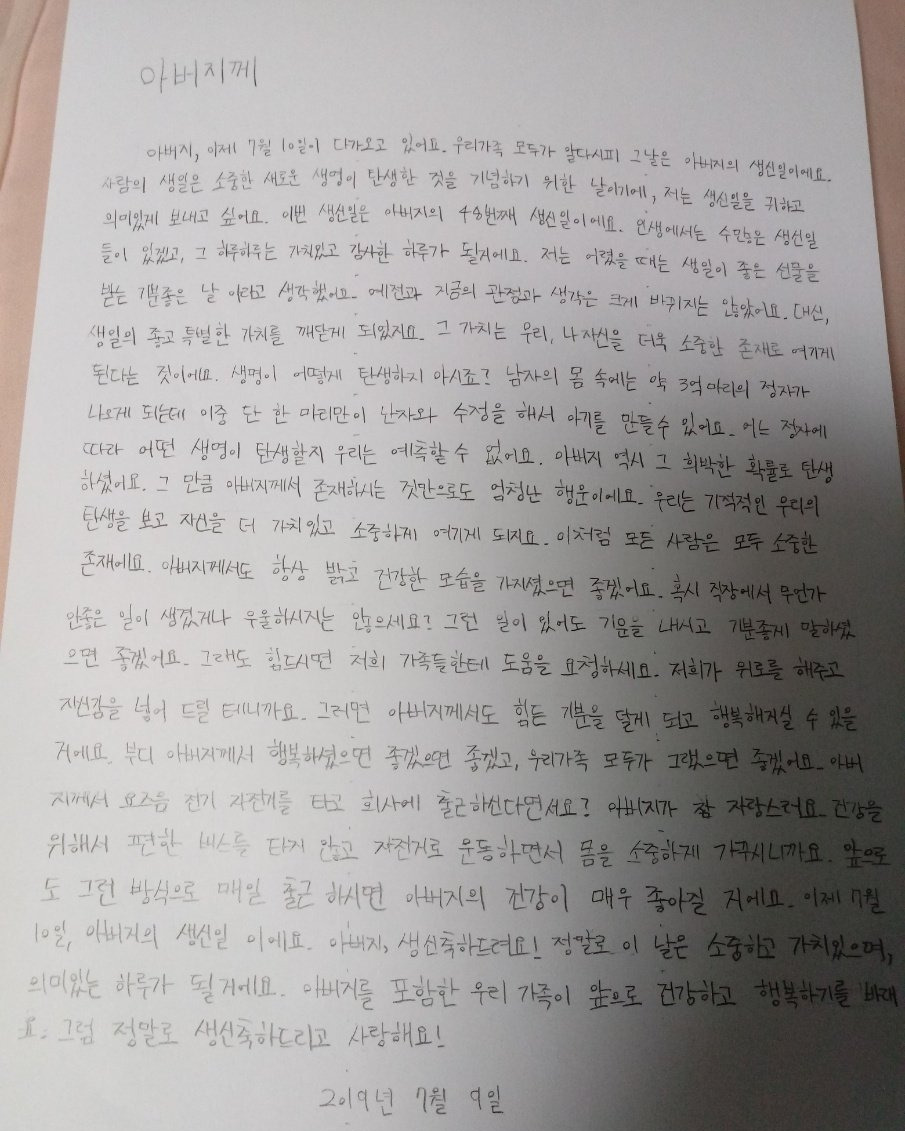 아버지께
아버지, 이제 7월 10일이 다가오고 있어요. 우리가족 모두가 알다시피 그날은 아버지의 생신일이에요.
사람의 생일은 소중한 새로운 생명이 탄생한 것을 기념하기 위한 날이기에, 저는 생신일을 귀하고
의미있게 보내고 싶어요. 이번 생신일은 아버지의 48번째 생신일이에요. 인생에서는 수많은 생신일
들이 있겠고, 그 하루하루는 가치있고 감사한 하루가 될거에요. 저는 어렸을 때는 생일이 좋은 선물을
받는 기분좋은 날 이라고 생각했어요. 예전과 지금의 관점과 생각은 크게 바뀌지는 않았어요. 대신,
생일의 좋고 특별한 가치를 깨닫게 되었지요. 그 가치는 우리, 나 자신을 더욱 소중한 존재로 여기게
된다는 것이에요. 생명이 어떻게 탄생하지 아시죠? 남자의 몸 속에는 약 3억마리의 정자가
나오게 되는데 이중 단 한 마리만이 난자와 수정을 해서 아기를 만들수 있어요. 어느 정자에
따라 어떤 생명이 탄생할지 우리는 예측할 수 없어요. 아버지 역시 그 희박한 확률로 탄생
하셨어요. 그 만큼 아버지께서 존재하시는 것만으로도 엄청난 행운이에요. 우리는 기적적인 우리의
탄생을 보고 자신을 더 가치있고 소중하게 여기게 되지요. 이처럼 모든 사람은 모두 소중한
존재에요. 아버지께서도 항상 밝고 건강한 모습을 가지셨으면 좋겠어요. 혹시 직장에서 무언가
안좋은 일이 생겼거나 우울하시지는 않으세요? 그런 일이 있어도 기운을 내시고 기분좋게 말하셨
으면 좋겠어요. 그래도 힘드시면 저희 가족들한테 도움을 요청하세요. 저희가 위로를 해주고
자신감을 넣어 드릴 테니까요. 그러면 아버지께서도 힘든 기분을 덜게 되고 행복해지실 수 있을
거에요. 부디 아버지께서 행복하셨으면 좋겠으면 좋겠고, 우리가족 모두가 그랬으면 좋겠어요. 아버
지께서 요즈음 전기 자전거를 타고 회사에 출근하신다면서요? 아버지가 참 자랑스러요. 건강을
위해서 편한 버스를 타지 않고 자전거로 운동하면서 몸을 소중하게 가꾸시니까요. 앞으로
도 그런 방식으로 매일 출근 하시면 아버지의 건강이 매우 좋아질 거에요. 이제 7월
10일, 아버지의 생신일 이에요. 아버지, 생신축하드려요! 정말로 이 날은 소중하고 가치있으며,
의미있는 하루가 될거에요. 아버지를 포함한 우리 가족이 앞으로 건강하고 행복하기를 바래
요. 그럼 정말로 생신축하드리고 사랑해요!
2019년 7월 9일